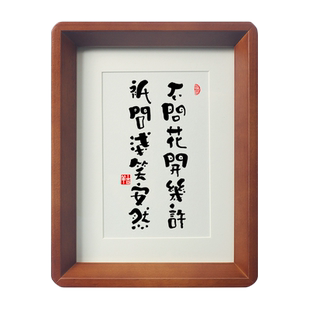 不問花開幾許
衹問淺笑安然